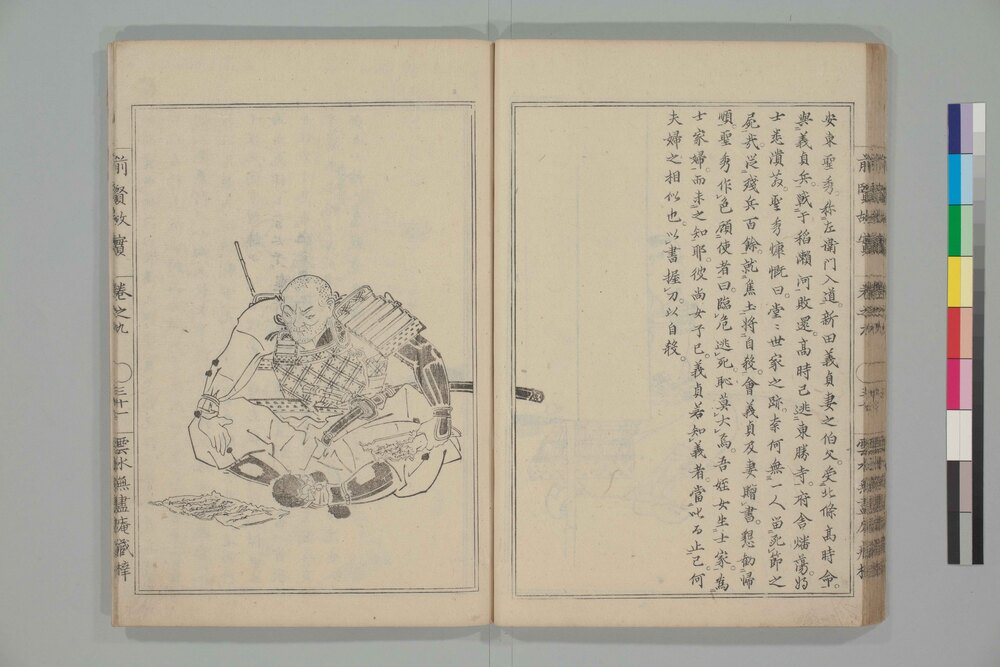 安東聖秀。称左衛門入道。新田義貞妻之伯父。受北條高時命。
與義貞兵戰于稲瀬河。敗還。高時已逃東勝寺。府舎燔蕩。將
士悉潰散。聖秀慷慨曰。堂〻世家之跡。索何無一人留死節之
屍哉。從殘兵百餘。就焦土將自殺。會義貞及妻贈書。懇勧歸
順。聖秀作色顧使者曰。臨危逃死。恥莫大焉。吾姪女生士家。為
士家婦。而未之知耶。彼尚女子已。義貞若知義者。當叱而止已。何
夫婦之相似也。以書握刀。以自殺。
前賢故實
卷之九
三十一
雲水無盡庵藏梓